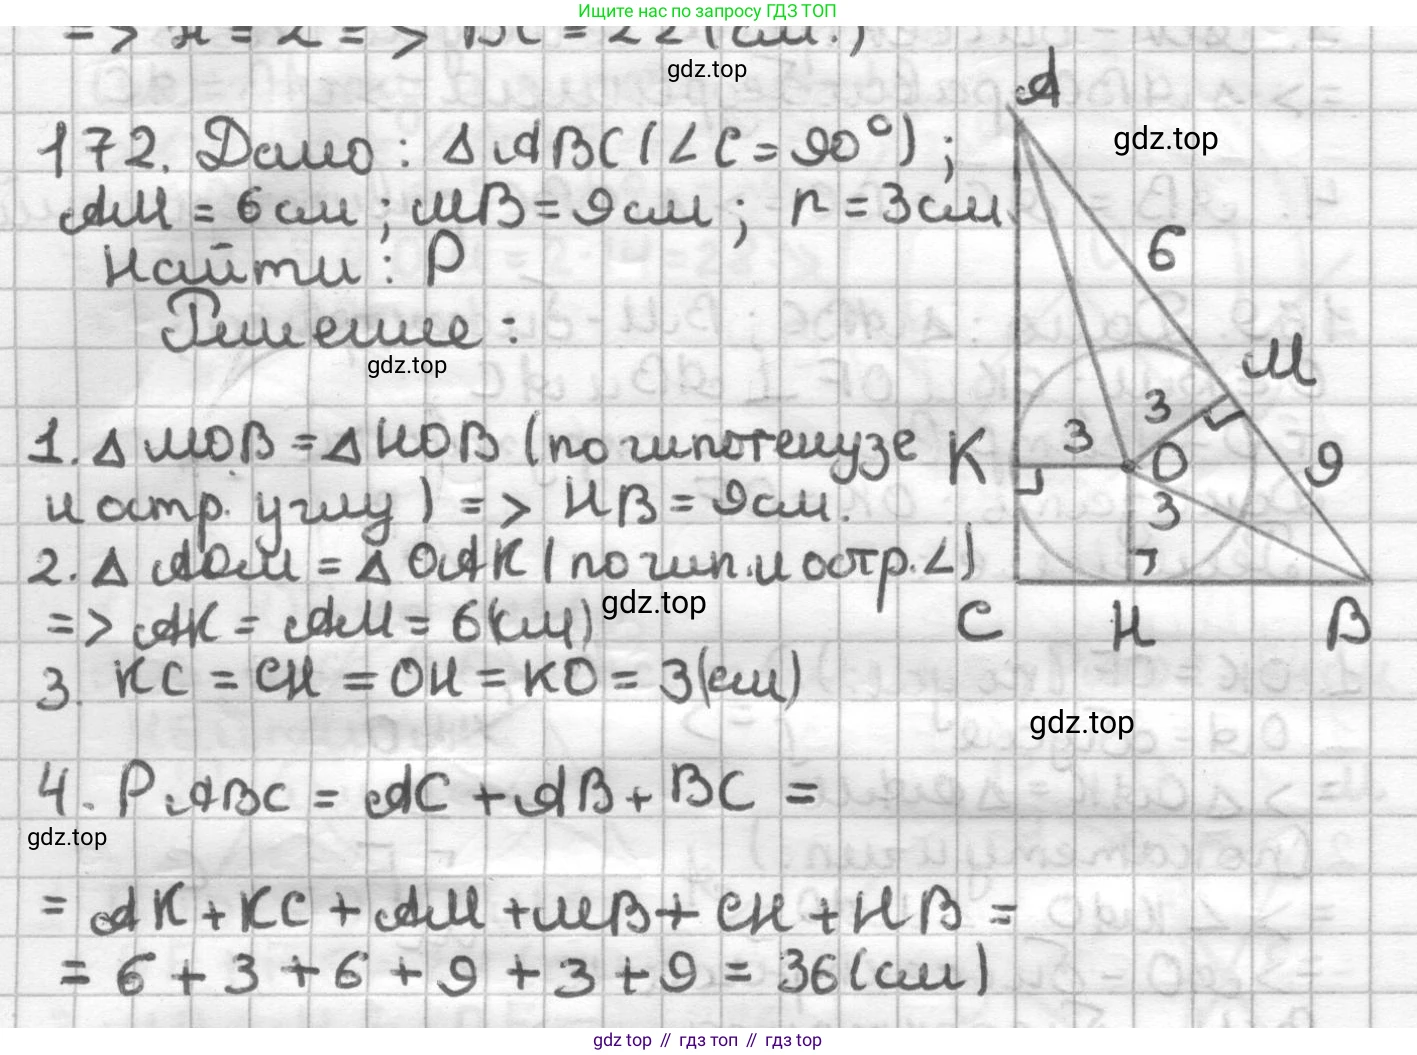 Ищите нас по запросу ГДЗ ТОП
=> x = 2 => BC = 22 (см.)
gdz.top
172. Дано: Δ ABC (∠C = 90°);
AM = 6 см; MB = 9 см; r = 3 см
Найти: P
Решение:
gdz.top
1. Δ MOB = Δ HOB (по гипотенузе
и остр. углу) => HB = 9 см.
2. Δ AOM = Δ OAK (по гип. и остр. ∠)
=> AK = AM = 6 (см)
gdz.top
3. KC = CH = OH = KO = 3 (см)
4. P ABC = AC + AB + BC =
gdz.top
= AK + KC + AM + MB + CH + HB =
= 6 + 3 + 6 + 9 + 3 + 9 = 36 (см)
A
gdz.top
6
M
3
K 3 O 9
3
C H B
gdz.top
gdz top // гдз топ // гдз top